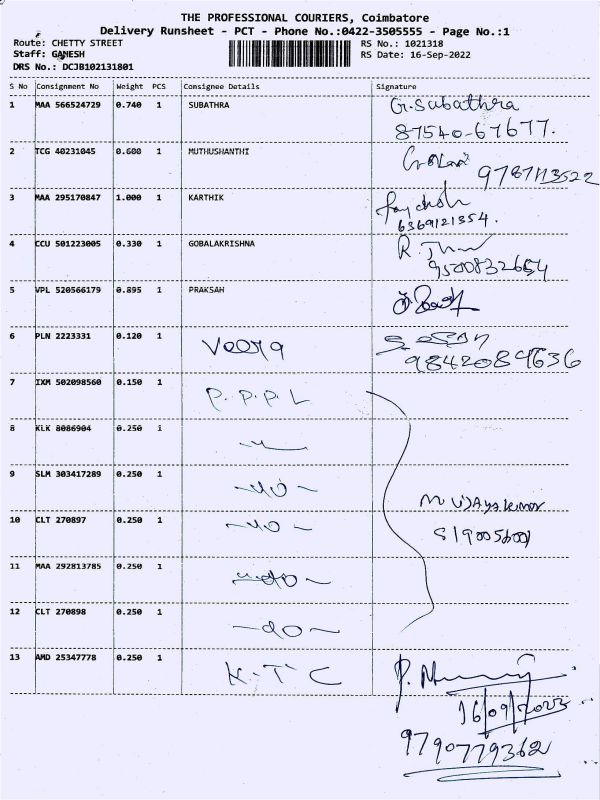 THE PROFESSIONAL COURIERS, Coimbatore
Delivery Runsheet - PCT - Phone No.:0422-3505555 - Page No.:1
Route: CHETTY STREET
Staff: GANESH
DRS No.: DCJB102131801
RS No.: 1021318
RS Date: 16-Sep-2022
S No Consignment No Weight PCS Consignee Details Signature
1 MAA 566524729 0.740 1 SUBATHRA G.Subathra
87540-67677.
2 TCG 40231045 0.600 1 MUTHUSHANTHI
9787113522
3 MAA 295170847 1.000 1 KARTHIK
6369121354.
4 CCU 501223005 0.330 1 GOBALAKRISHNA
9500832664
5 VPL 520566179 0.895 1 PRAKSAH
6 PLN 2223331 0.120 1
9842089636
7 IXM 502098560 0.150 1 P.P.P.L
8 KLK 8086904 0.250 1
9 SLM 303417289 0.250 1
M VIJAYakumar
10 CLT 270897 0.250 1
11 MAA 292813785 0.250 1
12 CLT 270898 0.250 1 -do-
13 AMD 25347778 0.250 1 K.T C
9790779362